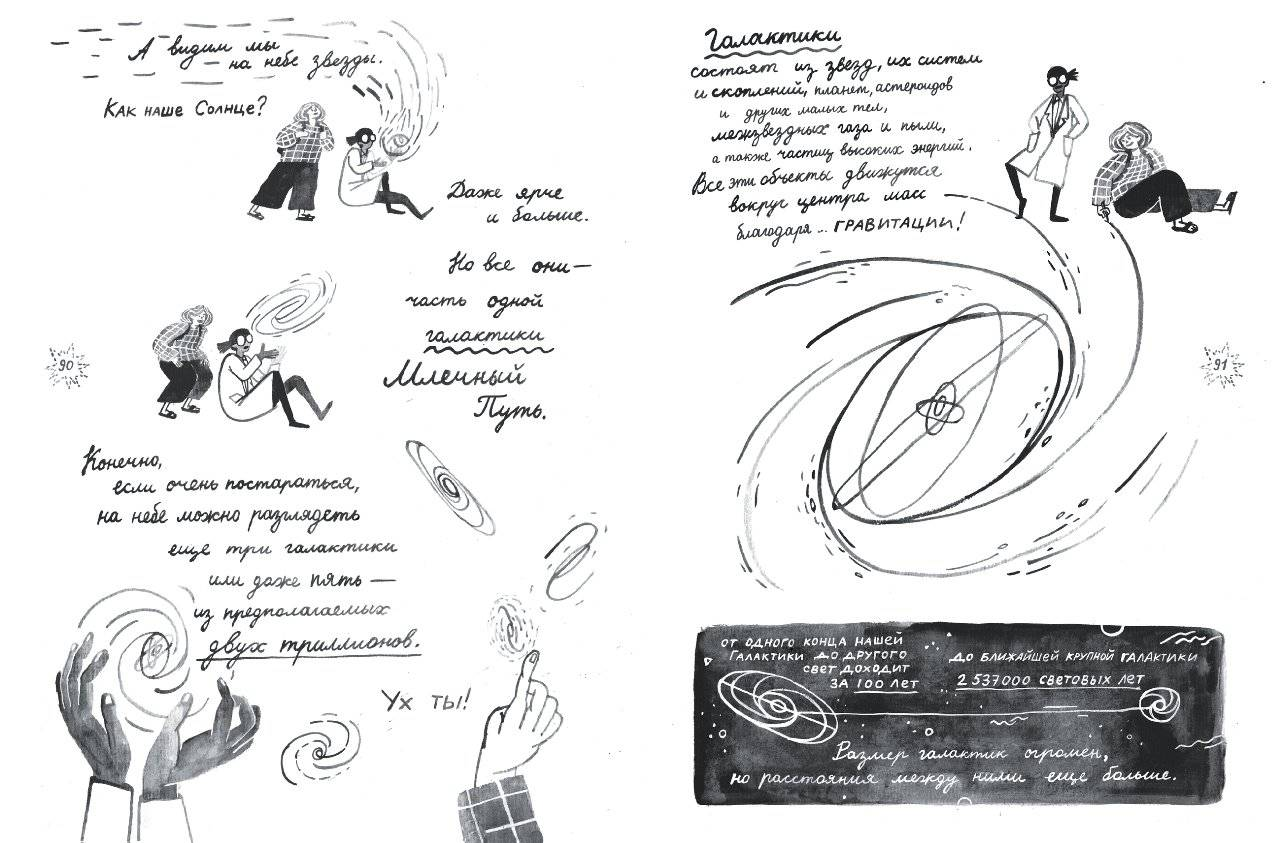 А видим мы
— на небе звезды.
Как наше Солнце?
Даже ярче
и больше.
Но все они —
часть одной
галактики
Млечный
Путь.
90
Конечно,
если очень постараться,
на небе можно разглядеть
еще три галактики
или даже пять —
из предполагаемых
двух триллионов.
Ух ты!
Галактики
состоят из звезд, их систем
и скоплений, планет, астероидов
и других малых тел,
межзвездных газа и пыли,
а также частиц высоких энергий.
Все эти объекты движутся
вокруг центра масс
благодаря ... ГРАВИТАЦИИ!
91
ОТ ОДНОГО КОНЦА НАШЕЙ
ГАЛАКТИКИ ДО ДРУГОГО
СВЕТ ДОХОДИТ
ЗА 100 ЛЕТ
ДО БЛИЖАЙШЕЙ КРУПНОЙ ГАЛАКТИКИ
2 537 000 СВЕТОВЫХ ЛЕТ
Размер галактик огромен,
но расстояния между ними еще больше.